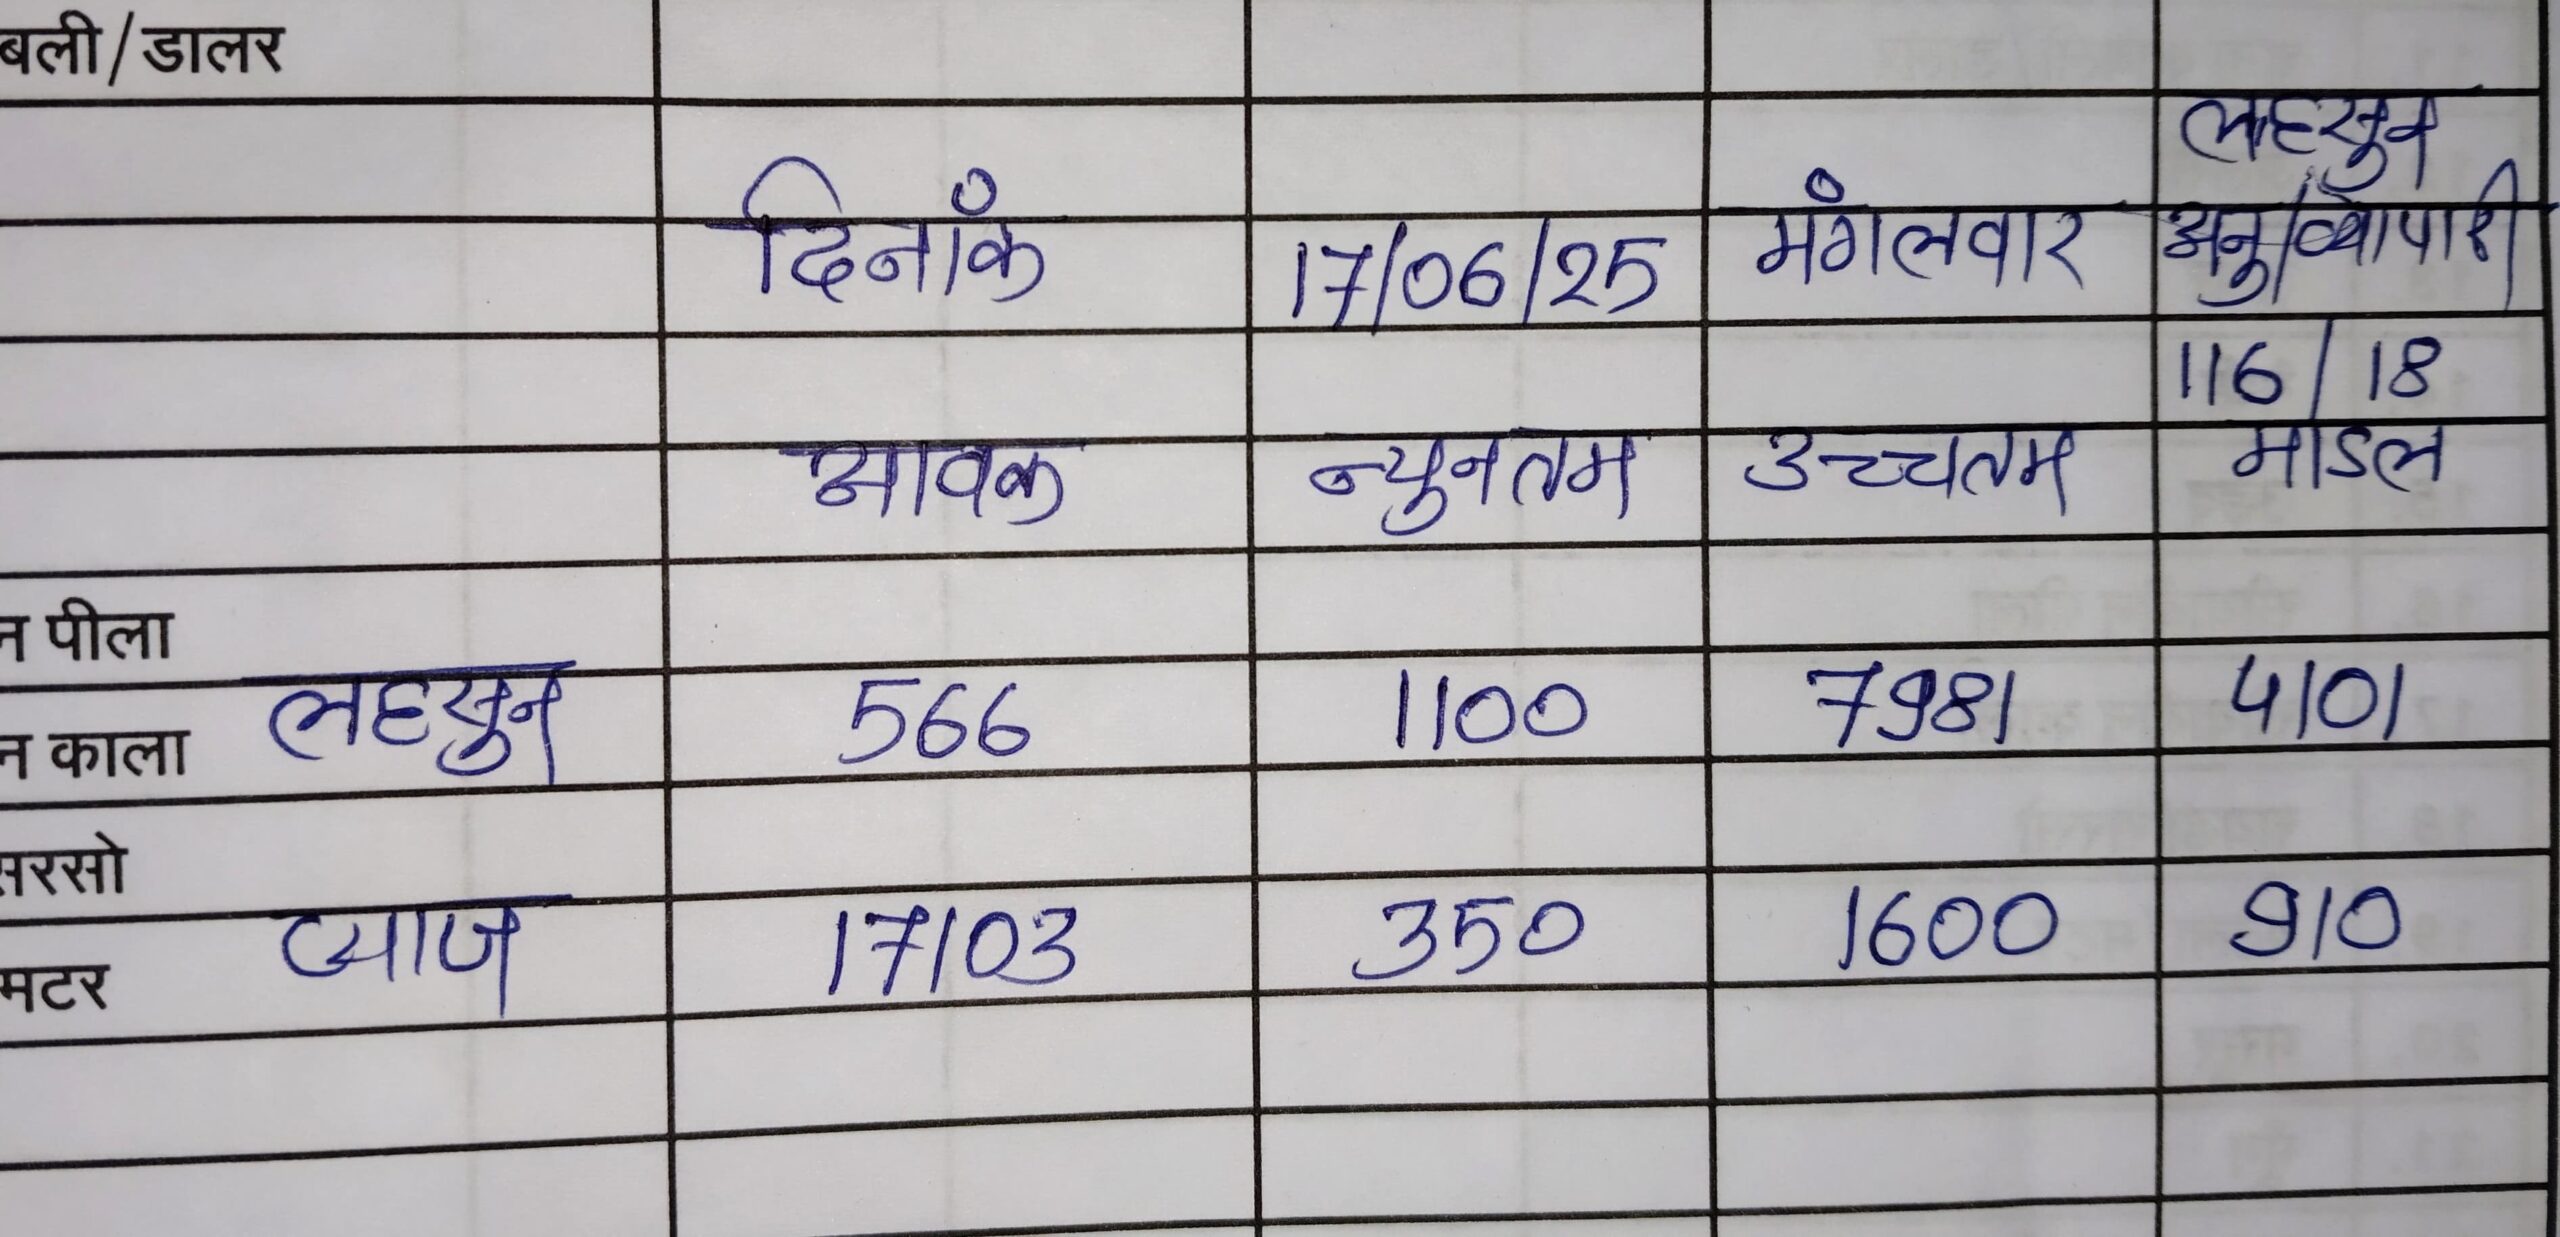 बली/डालर
लहसुन
दिनांक 17/06/25 मंगलवार अनु/व्यापारी
116/18
आवक न्युनतम उच्चतम माडल
न पीला
लहसुन 566 1100 7981 4101
न काला
सरसो
प्याज 17103 350 1600 910
मटर